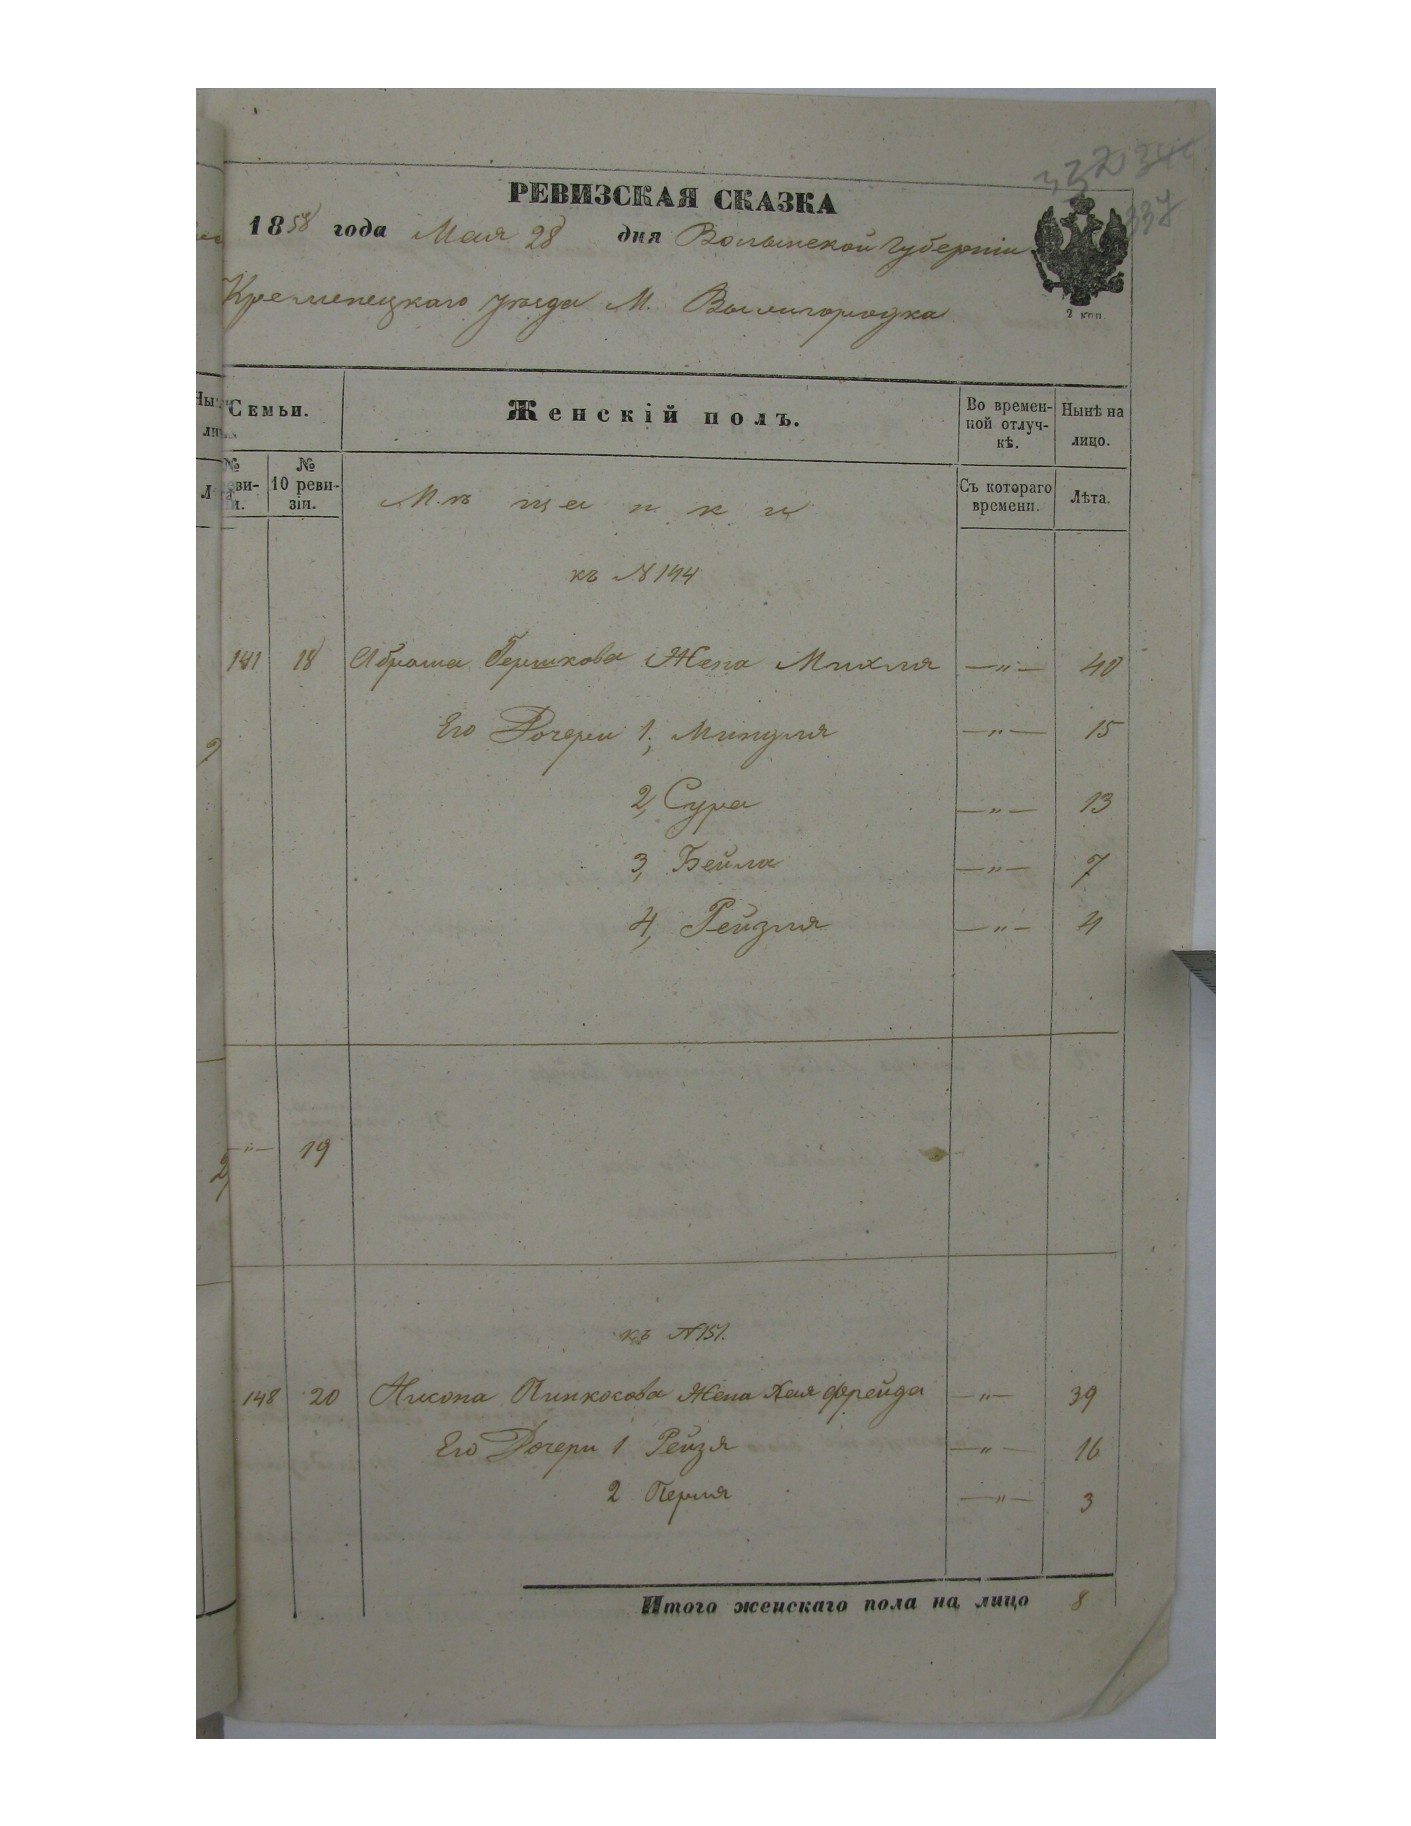 332 344
337
РЕВИЗСКАЯ СКАЗКА
1858 года Мая 28 дня Волынской Губернiи
Кременецкаго уѣзда М. Вышгородка
2 коп
Семьи.
Женскiй полъ.
Во времен-
ной отлуч-
кѣ.
Нынѣ на
лицо.
№
реви-
зiи.
№
10 реви-
зiи.
Мѣщанки
Съ котораго
времени.
Лѣта.
къ №144
141 18 Абрама Гершкова Жена Михля —„— 40
Его Дочери 1, Минцля —„— 15
2, Сура —„— 13
3, Бейла —„— 7
4, Рейзля —„— 4
—„— 19
къ №151.
148 20 Нисона Пинкосова Жена Хая Фрейда —„— 39
Его Дочери 1 Рейзя —„— 16
2 Перля —„— 3
Итого женскаго пола на лицо 8